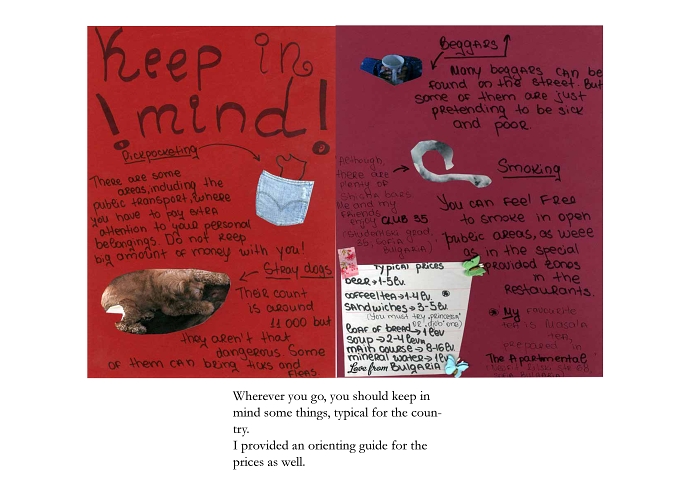 Keep in
mind!
Pickpocketing
There are some
areas, including the
public transport, where
you have to pay extra
attention to your personal
belongings. Do not keep
big amount of money with you!
Stray dogs
Their count
is around
11 000 but
they aren't that
dangerous. Some
of them can bring ticks and
fleas.
Beggars
Many beggars can be
found on the street. But
some of them are just
pretending to be sick
and poor
Although,
there are
plenty of
shisha bars
Me and my
friends
enjoy CLUB 35
35, Sofia
Bulgaria)
Smoking
You can feel free
to smoke in open
public areas, as well
as in the special
provided zones
in the
restaurants.
Typical prices
beer→1-5lv.
coffee/tea→1-4lv.
sandwiches→3-5lv
(You must try "princessa"
or
loaf of bread→1lev
soup→2-4leva
main course→8-16lv
mineral water→1lv
Love from BULGARIA
My favourite
tea is Masala
tea,
prepared in
The Apartmental
Wherever you go, you should keep in
mind some things, typical for the coun-
try.
I provided an orienting guide for the
prices as well.